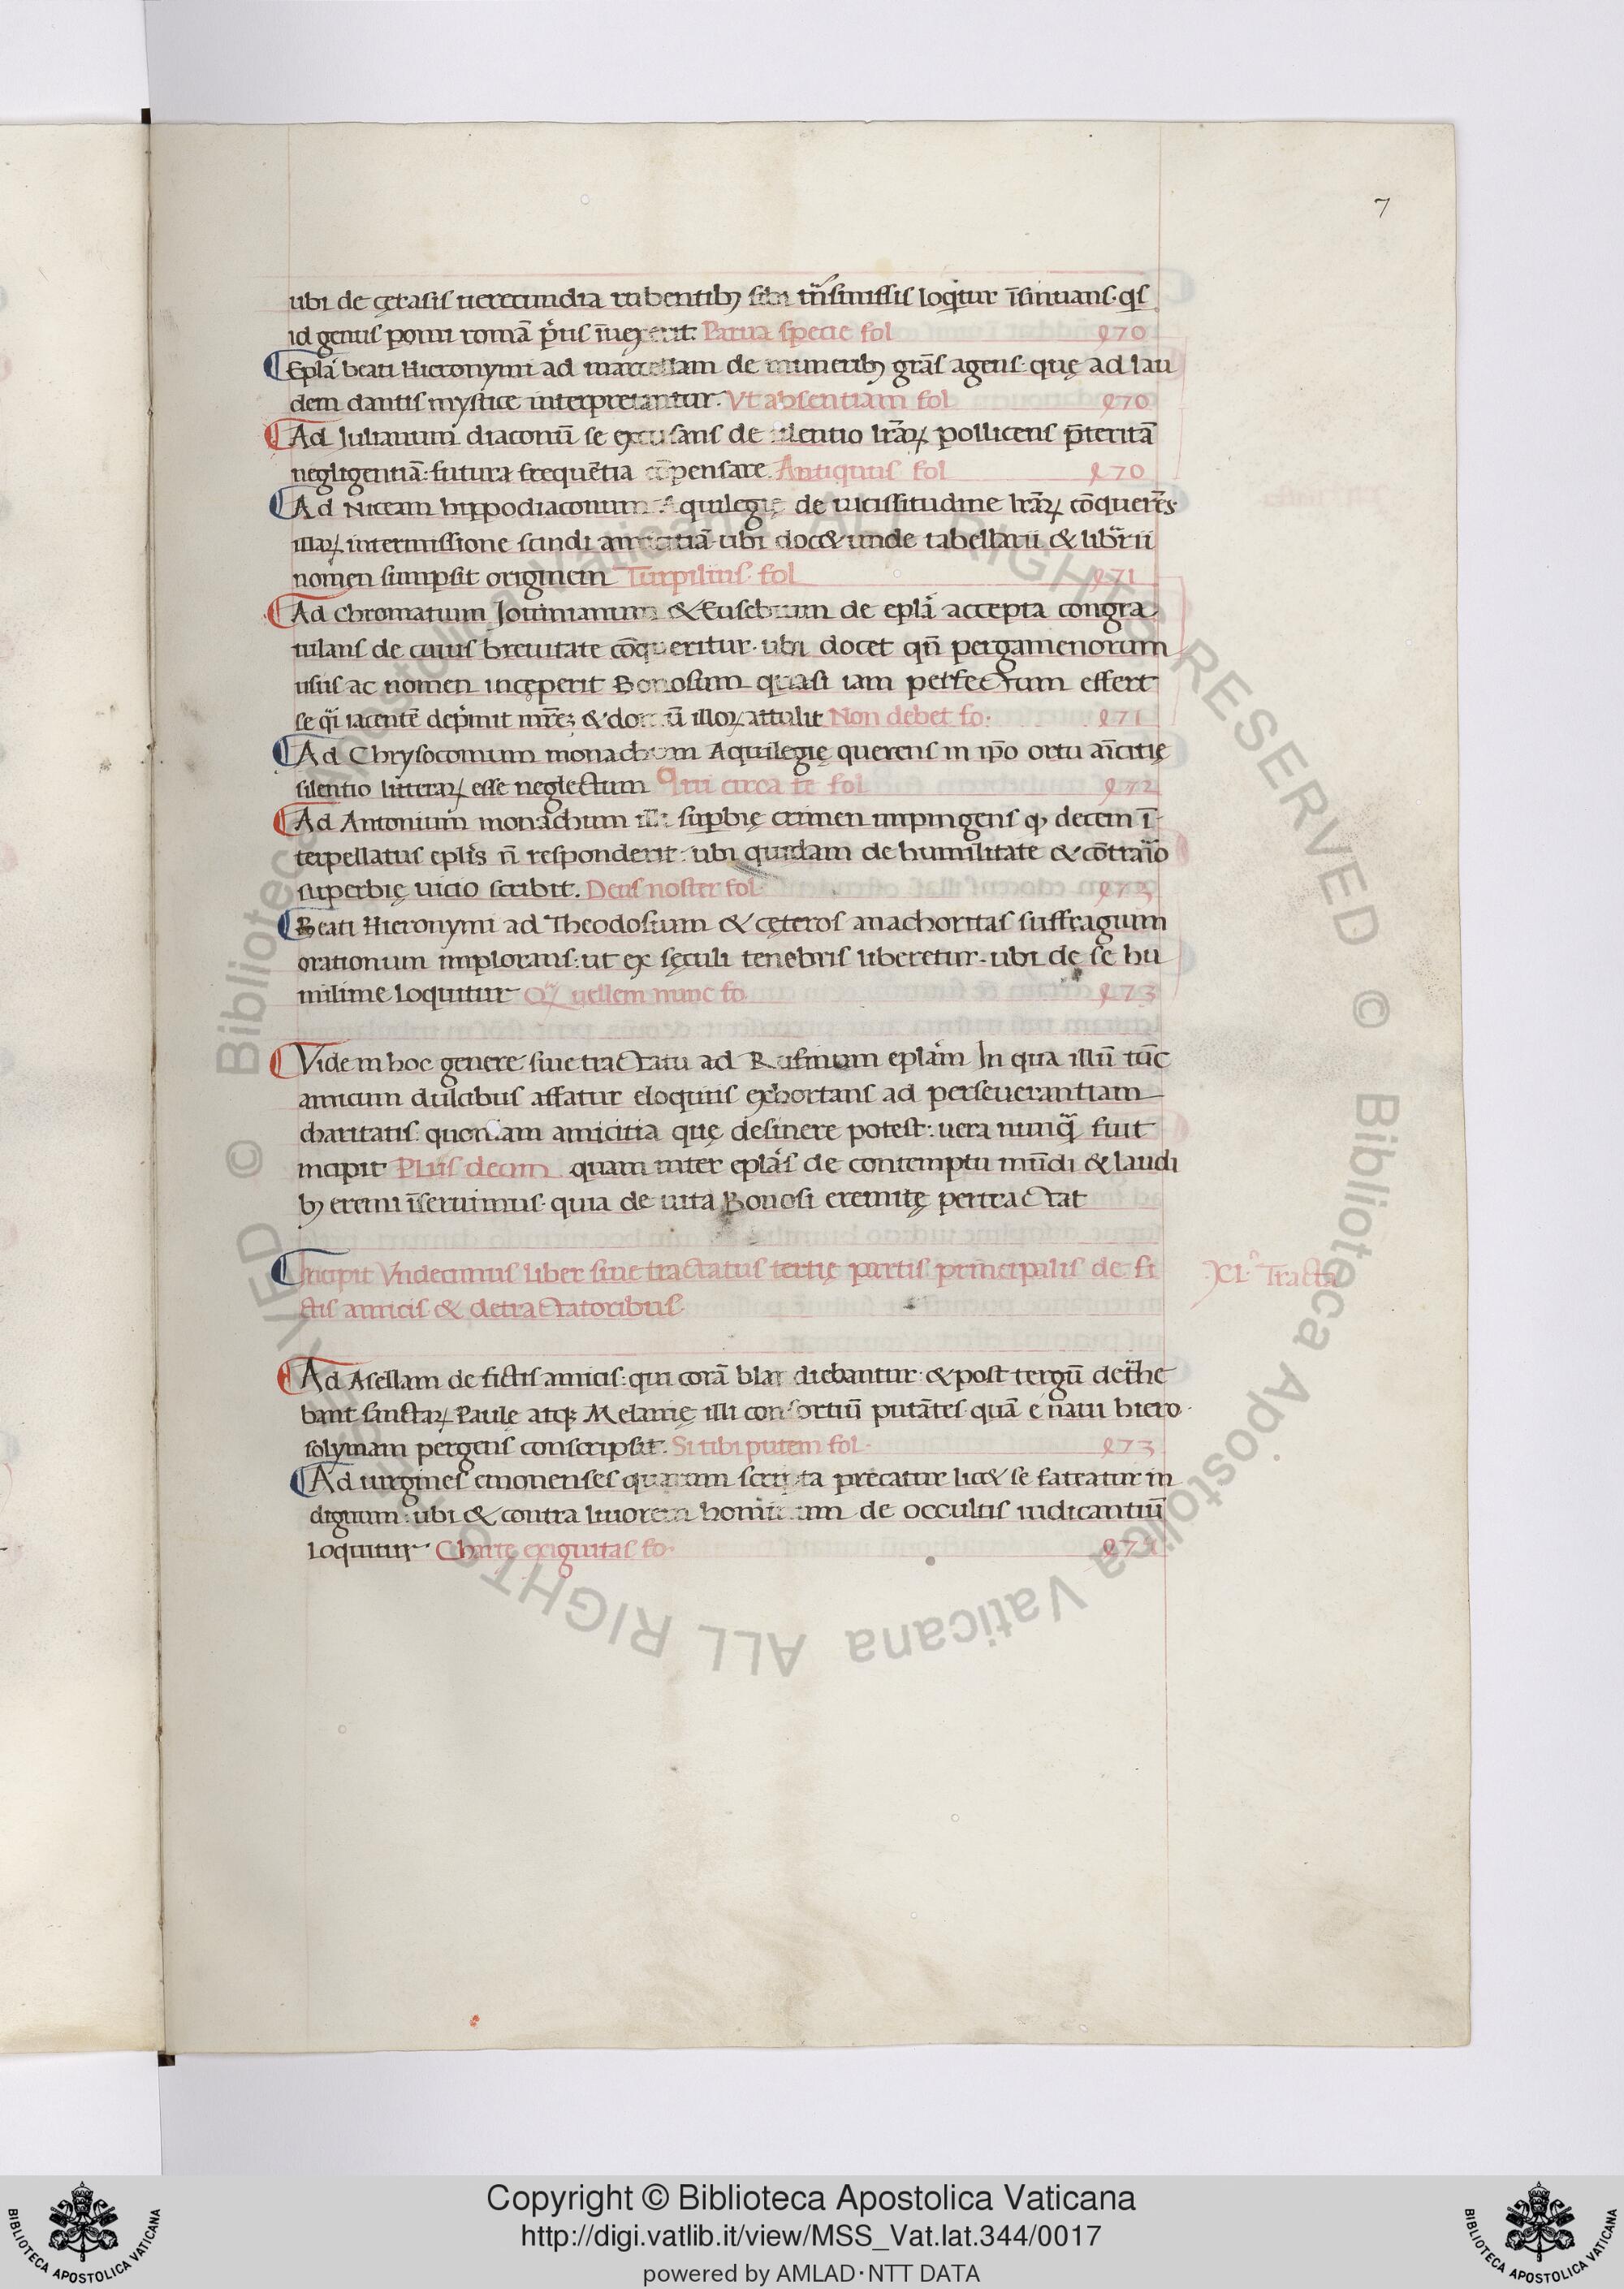 7
ubi de cęrasis uerecundia rubentibꝫ sibi trãsmissis loqͥtur ĩsinuans qͥs
id genus pomi romã pͥus ĩuexerit. Parua specie fol 270
Epl̃a beati Hieronymi ad marcellam de muneribꝫ grãs agens quę ad lau
dem dantis mystice interpretantur. Vt absentiam fol 270
Ad Julianum diaconũ se excusans de silentio lr̃aꝝ pollicens p̃teritã
negligentiã: futura frequẽtia cõpensare. Antiquus fol 270
Ad Niceam hippodiaconum Aquilegię de uicissitudine lr̃aꝝ cõquerẽs
illaꝝ intermissione scindi amicitiã ubi doc& unde tabellarii & librͣii
nomen sumpsit originem Turpilius fol 271
Ad Chromatium Jouinianum & Eusebium de epl̃a accepta congra
tulans de cuius breuitate cõqueritur. ubi docet qñ pergamenorum
usus ac nomen incęperit Bonosum quasi iam perfectum effert
se qͣi iacentẽ depͥmit illoꝝ attulit Non debet fo. 271
Ad Chrysocomum monachum Aquilegię querens in ip̃o ortu amicitię
silentio litteraꝝ esse neglectum Qui circa te fol 272
Ad Antonium monachum illi supbię crimen impingens ꝙ decem ĩ
terpellatus epl̃is ñ responderit: ubi quidam de humilitate & cõtrario
superbię uicio scribit. Deus noster fol. 273
Beati Hieronymi ad Theodosium & cęteros anachoritas suffragium
orationum implorans: ut ex sęculi tenebris liberetur. ubi de se hu
milime loquitur Qͣꝫ uellem nunc fo 273
Vide in hoc genere siue tractatu ad Rufinum epl̃am In qua illũ tũc
amicum dulcibus affatur eloquiis exhortans ad perseuerantiam
charitatis: quoniam amicitia quę desinere potest: uera nunqͣ̃ fuit
incipit Plus deum quam inter epl̃as de contemptu mũdi & laudi
bꝫ eremi ĩseruimus. quia de uita Bonosi eremitę pertractat
Incipit Vndecimus liber siue tractatus tertię partis principalis de fi
ctis amicis & detractatoribus.
XI. Tracta
Ad Asellam de fictis amicis: qui corã blandiebantur: & post tergũ detͣhe
bant sanctaꝝ Paulę atqꝫ Melanię illi consortiũ putãtes quã e naui hiero
solymam pergens conscripsit. Si tibi putem fol. 273
Ad uirgines emonenses quarum scripta precatur lic& se fateatur in
dignum: ubi & contra liuorem hominum de occultis iudicantiũ
loquitur. Charte exiguitas fo.
© Biblioteca Apostolica Vaticana ALL RIGHTS RESERVED © Biblioteca Apostolica Vaticana ALL RIGHTS RESERVED
BIBLIOTECA APOSTOLICA VATICANA
Copyright © Biblioteca Apostolica Vaticana
http://digi.vatlib.it/view/MSS_Vat.lat.344/0017
powered by AMLAD·NTT DATA
BIBLIOTECA APOSTOLICA VATICANA